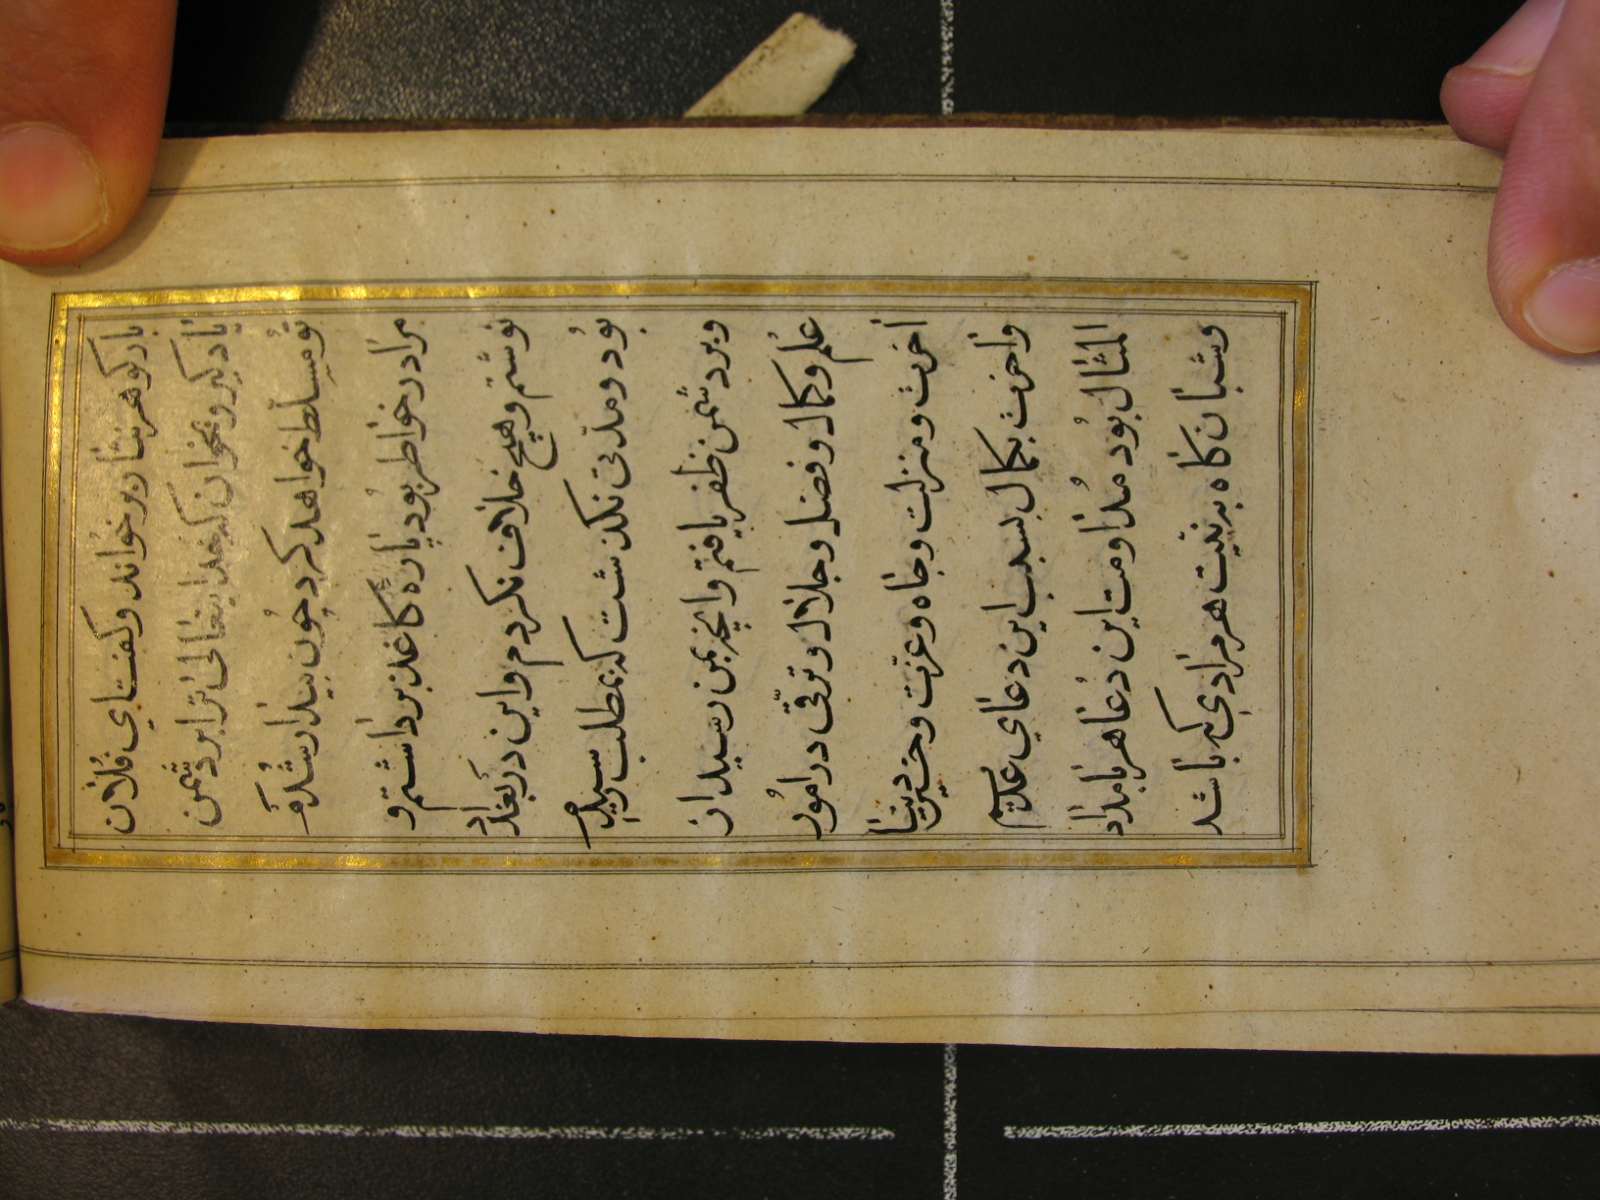 بار کوهر نثار برخواند و کفت ای فلان
یاد کیر و بخوان که خدایتعالی ترا بر دشمن
تو مسلط خواهد کرد چون بیدار شدم
مراد رخواطر بود پاره کاغذ برداشتم و
نوشتم و هیچ خلاف نکردم و این در بغداد
بود و مدتی نکذشت که بمطلب رسیدم
و بر دشمن ظفر یافتم و انچه بمن رسید از
علم و کمال و فضل و جلال و ترقی در امور
اخرت و منزلت و جاه و عزت و خیریت دنیا
و اخرت بکمال بسبب این دعای عدیم
المثال بود مداومت این دعا هر بامداد
و شبانکاه به نیت هر مرادی که باشد